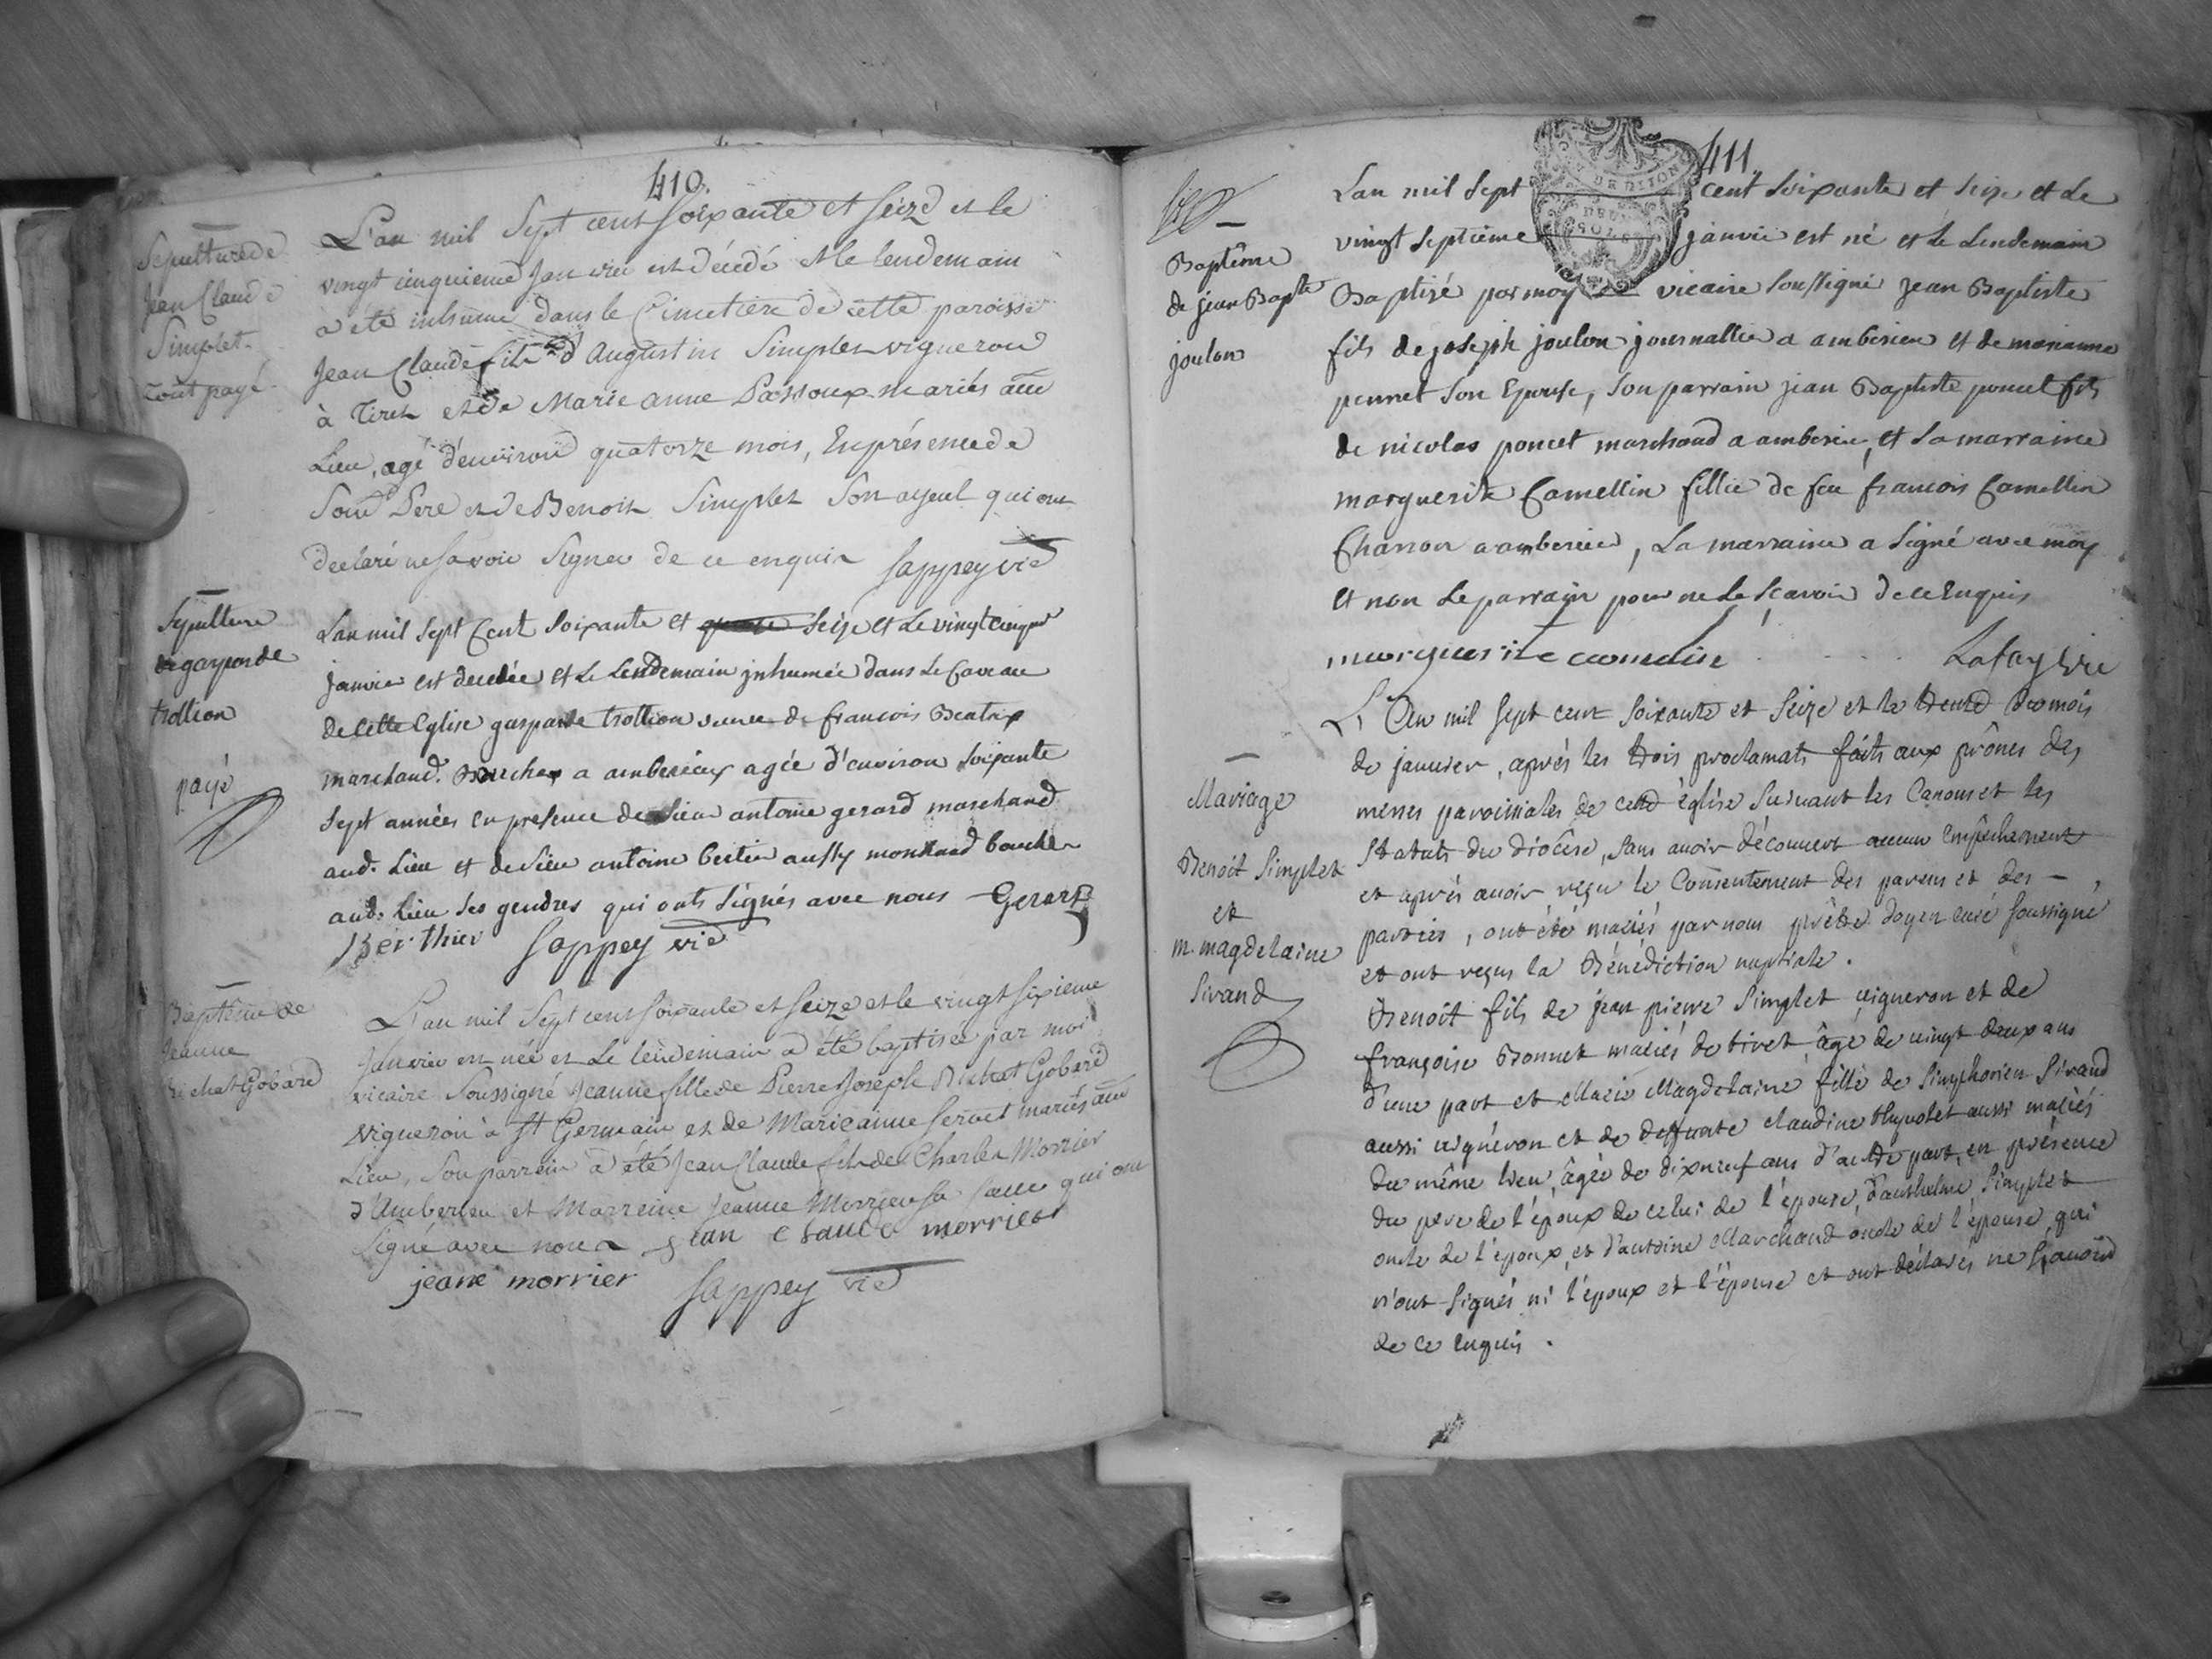 410.
Sepulture de
Jean Claude
Simplet.
tout payé
L'an mil Sept cent soixante et seize et le
vingt cinquieme Janvier est décédé et le lendemain
a été inhumé dans le Cimetière de cette paroisse
Jean Claude fils d'Augustin Simplet vigneron
à Tiret et de Marie anne Passoux mariés aud
Lieu, agé d'environ quatorze mois, En présence de
Son Pere et de Benoit Simplet Son ayeul qui ont
declaré ne savoir signer de ce enquis Sappey vic
Sépulture
de gasparde
trollion
payé
L'an mil sept Cent soixante et seize et Le vingt cinque
janvier est decedée et Le Lendemain inhumée dans Le Caveau
de Cette Eglise gasparde trollion veuve de francois Beatrix
marchand. Boucher a amberieux agée d'environ soixante
sept années en presence de sieur antoine gerard marchand
aud. Lieu et de sieur antoine bertier aussy marchand boucher
aud. Lieu ses gendres qui onts signés avec nous Gerard
Berthier Sappey vic
Baptême de
Jeanne
Bichat Gobard
L'an mil Sept cent soixante et seize et le vingt sixieme
Janvier est née et Le lendemain a été baptisée par moi
vicaire Soussigné Jeanne fille de Pierre Joseph Bichat Gobard
vigneron à St Germain et de Marieanne Servet mariés aud
Lieu, Son parrein a été Jean Claude fils de Charles Morrier
d'Amberieu et Marreine Jeanne Morrier sa sœur qui ont
Signé avec nous jean claude morrier
jeane morrier Sappey vic
411.
DE DIJON
DEUX
SOLS
Baptême
de jean Bapte
joulon
L'an mil sept cent soixante et seize et Le
vingt septième janvier est né et Le Lendemain
Baptisé par moy vicaire soussigné jean Baptiste
fils de joseph joulon journallier a amberieu et de marianne
poncet son Epouse, son parrain jean Baptiste poncet fils
de nicolas poncet marchand a amberieu, et La marraine
marguerite Camellin fillie de feu francois Camellin
Charron a amberieu, La marraine a signé avec moy
et non Le parrain pour ne Le scavoir de ce Enquis
marguerite camelin Lafay vic
Mariage
Benoit Simplet
et
m. magdelaine
Sirand
L'An mil sept cent soixante et seize et le trente du mois
de janvier, aprés les trois proclamats faits aux prônes des
messes paroissiales de cette église suivant les Canons et les
Statuts du diocèse, sans avoir découvert aucun Empêchement
et aprés avoir reçu le Consentement des parens et des
parties, ont été mariés par nous prêtre doyen curé soussigné
et ont reçus la Bénédiction nuptiale.
Benoit fils de jean pierre Simplet vigneron et de
françoise Bonnet mariés de tiret âgé de vingt deux ans
d'une part et Marie Magdelaine fille de Simphorien Sirand
aussi vigneron et de deffunte claudine aussi mariés
du même lieu, âgée de dixneuf ans d'autre part, en présence
du pere de l'époux de celui de l'épouse, d'anthelme Simplet
oncle de l'époux, et d'antoine Marchand oncle de l'épouse, qui
n'ont signés ni l'époux et l'épouse et ont déclarés ne sçavoir
de ce enquis.